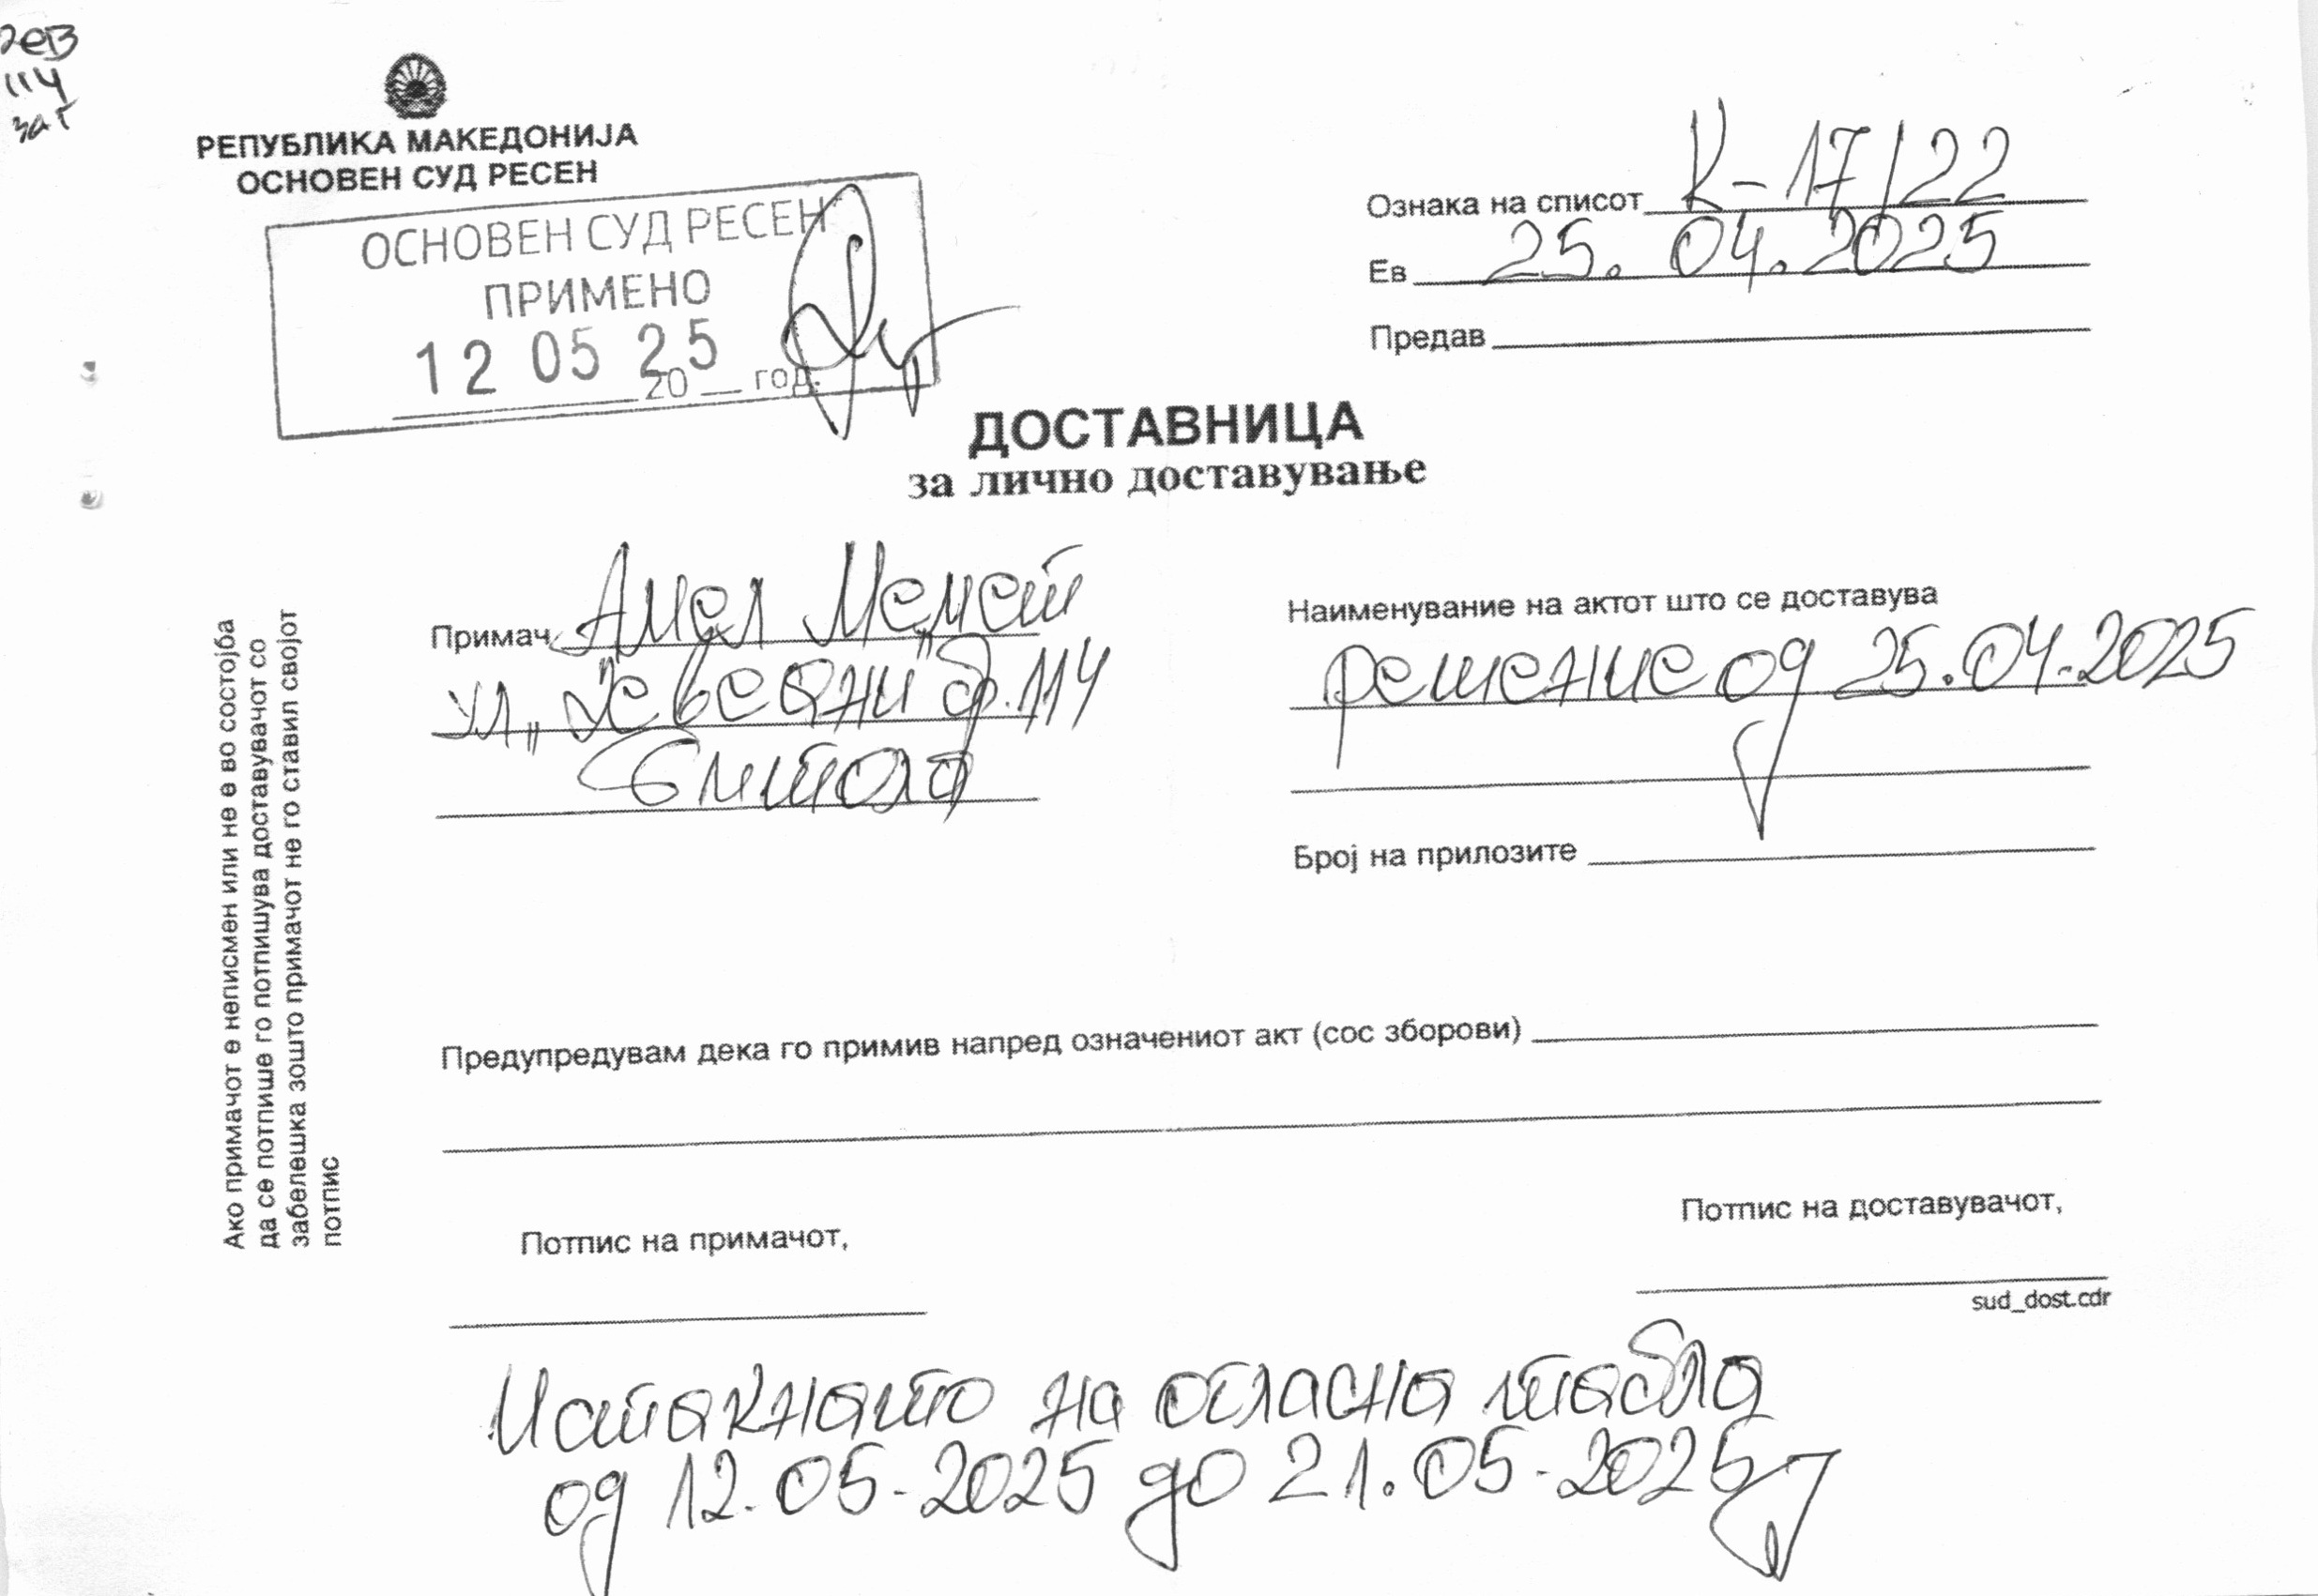 РЕПУБЛИКА МАКЕДОНИЈА
ОСНОВЕН СУД РЕСЕН
ОСНОВЕН СУД РЕСЕН
ПРИМЕНО
12 05 25
20 __ год.
Ознака на списот К-17/22
Ев 25.04.2025
Предав
ДОСТАВНИЦА
за лично доставување
Примач Амел Мемет
ул. бр. 114
Битола
Наименување на актот што се доставува
решение од 25.04.2025
Број на прилозите
Предупредувам дека го примив напред означениот акт (сос зборови)
Потпис на примачот,
Потпис на доставувачот,
sud_dost.cdr
Ако примачот е неписмен или не е во состојба
да се потпише го потпишува доставувачот со
забелешка зошто примачот не го ставил својот
потпис
Истакнато на огласна табла
од 12.05.2025 до 21.05.2025